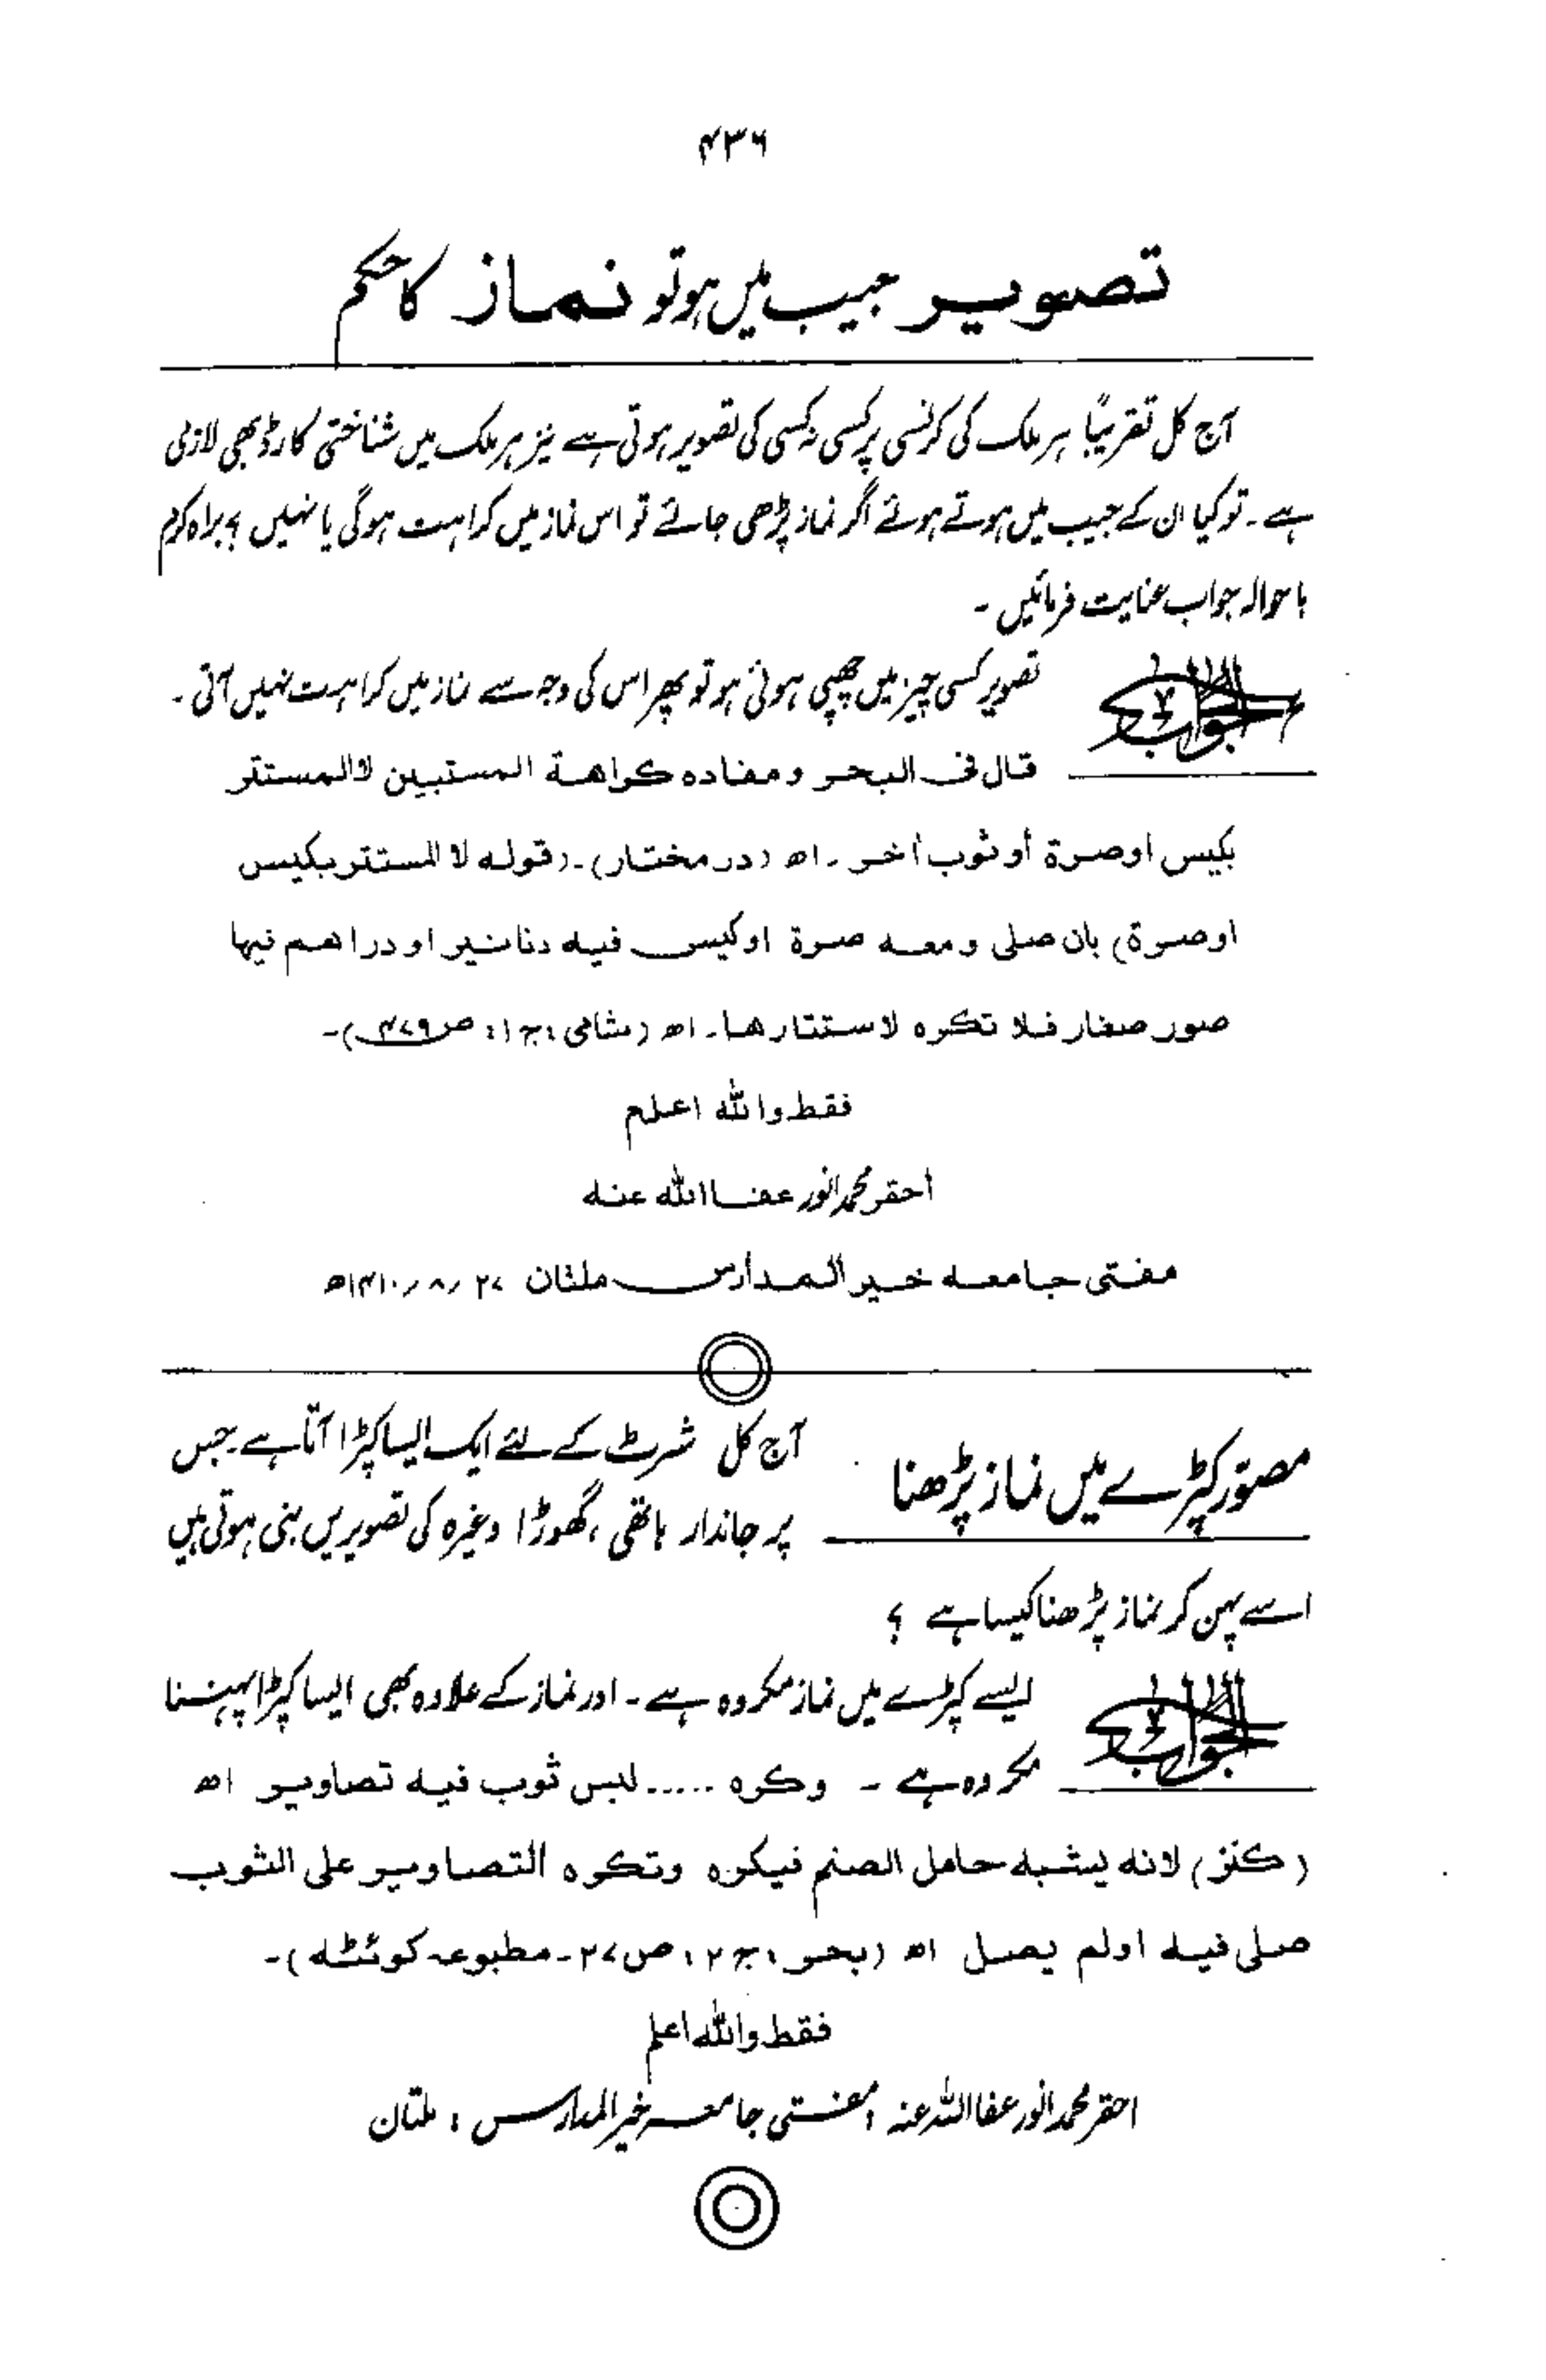 ۴۳۶
تصویر جیب میں ہو تو نماز کا حکم
آج کل تقریباً ہر ملک کی کرنسی پر کسی نہ کسی کی تصویر ہوتی ہے نیز ہر ملک میں شناختی کارڈ بھی لازمی
ہے۔ تو کیا ان کے جیب میں ہوتے ہوئے اگر نماز پڑھی جائے تو اس نماز میں کراہت ہوگی یا نہیں ؟ براہ کرم
باحوالہ جواب عنایت فرمائیں ۔
الجواب
تصویر کسی چیز میں چھپی ہوئی ہو تو پھر اس کی وجہ سے نماز میں کراہت نہیں آتی ۔
قال فی البحر ومفاده كراهة المستبين لا المستتر
بكيس اوصرة أو ثوب أخر ۔ اھ (در مختار)۔ (قوله لا المستتر بكيس
اوصرة) بان صلى ومعه صرة اوكيس فيه دنانير او دراهم فيها
صور صغار فلا تكره لاستتارها۔ اھ (شامی ؛ ج۱ ؛ ص۴۷۹)۔
فقط واللہ اعلم
احقر محمد انور عفا اللہ عنہ
مفتی جامعہ خیر المدارس ملتان ۲۷ / ۸ / ۱۴۱۰ھ
مصوّر کپڑے میں نماز پڑھنا
آج کل شرٹ کے لئے ایک ایسا کپڑا آتا ہے جس
پر جاندار ہاتھی ، گھوڑا وغیرہ کی تصویریں بنی ہوتی ہیں
اسے پہن کر نماز پڑھنا کیسا ہے ؟
الجواب
ایسے کپڑے میں نماز مکروہ ہے ۔ اور نماز کے علاوہ بھی ایسا کپڑا پہننا
مکروہ ہے ۔ وكره ..... لبس ثوب فيه تصاوير اھ
(كنز) لانه يشبه حامل الصنم فيكره وتكره التصاوير على الثوب
صلى فيه اولم يصل اھ (بحر ؛ ج۲ ؛ ص۲۷ ۔ مطبوعہ کوئٹہ)۔
فقط واللہ اعلم
احقر محمد انور عفا اللہ عنہ ، مفتی جامعہ خیر المدارس ؛ ملتان